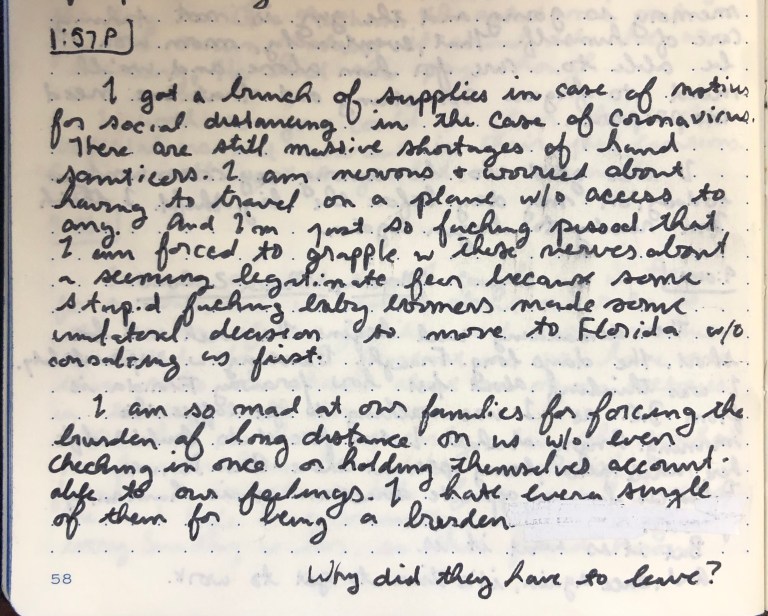 1:57P
I got a bunch of supplies in case of notius
for social distancing in the case of coronavirus.
There are still massive shortages of hand
saniticers. I am nervous + worried about
having to travel on a plane w/o access to
any. And I'm just so fucking pissed that
I am forced to grapple w these nerves about
a seeming legitimate fear because some
stupid fucking baby boomers made some
unilateral decision to move to Florida w/o
consulting us first.
I am so mad at our families for forcing the
burden of long distance on us w/o even
checking in once or holding themselves account-
able to our feelings. I hate every single
of them for being a burden.
Why did they have to leave?
58